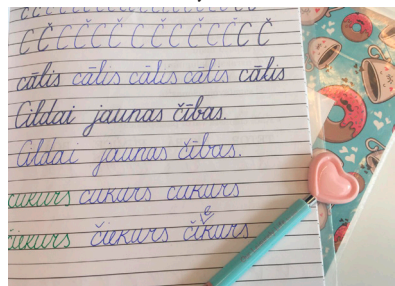 cālis cālis cālis cālis cālis
Cildai jaunas čības.
Cildai jaunas čības.
cukurs cukurs cukurs
čiekurs čiekurs čiekurs